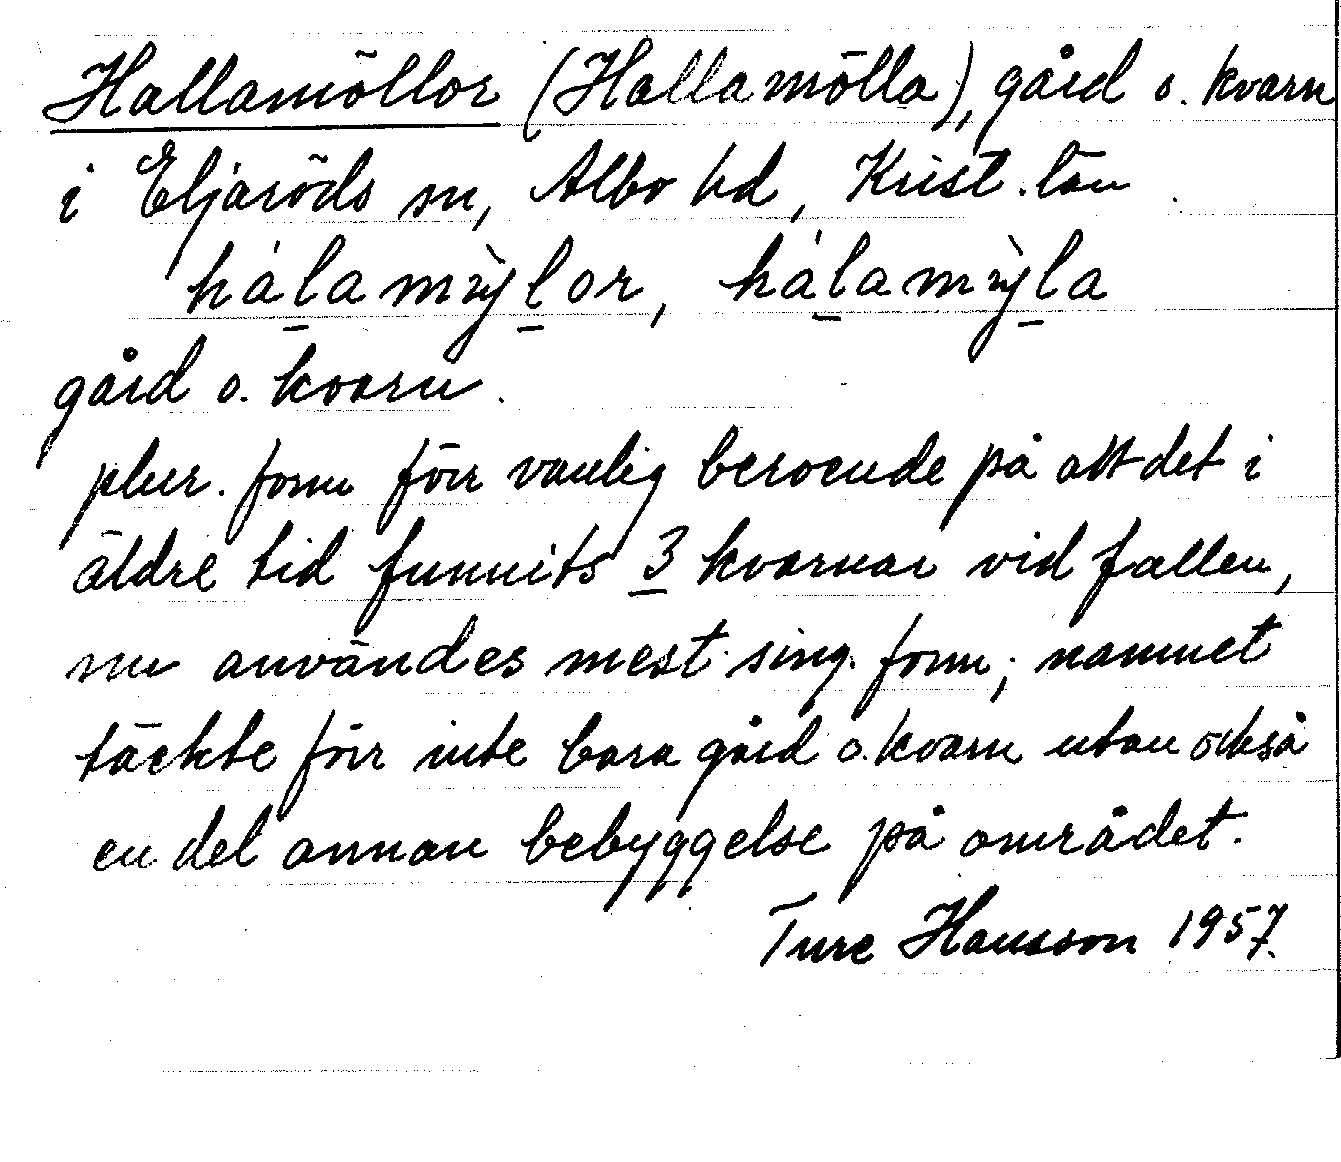 Hallamöllor (Hallamölla), gård o. kvarn
i Eljaröds sn, Albo hd, Krist. län
hálamỳlor, hálamỳla
gård o. kvarn.
plur. form förr vanlig beroende på att det i
äldre tid funnits 3 kvarnar vid fallen,
nu användes mest sing. form; namnet
täckte förr inte bara gård o. kvarn utan också
en del annan bebyggelse på området.
Ture Hansson 1957.